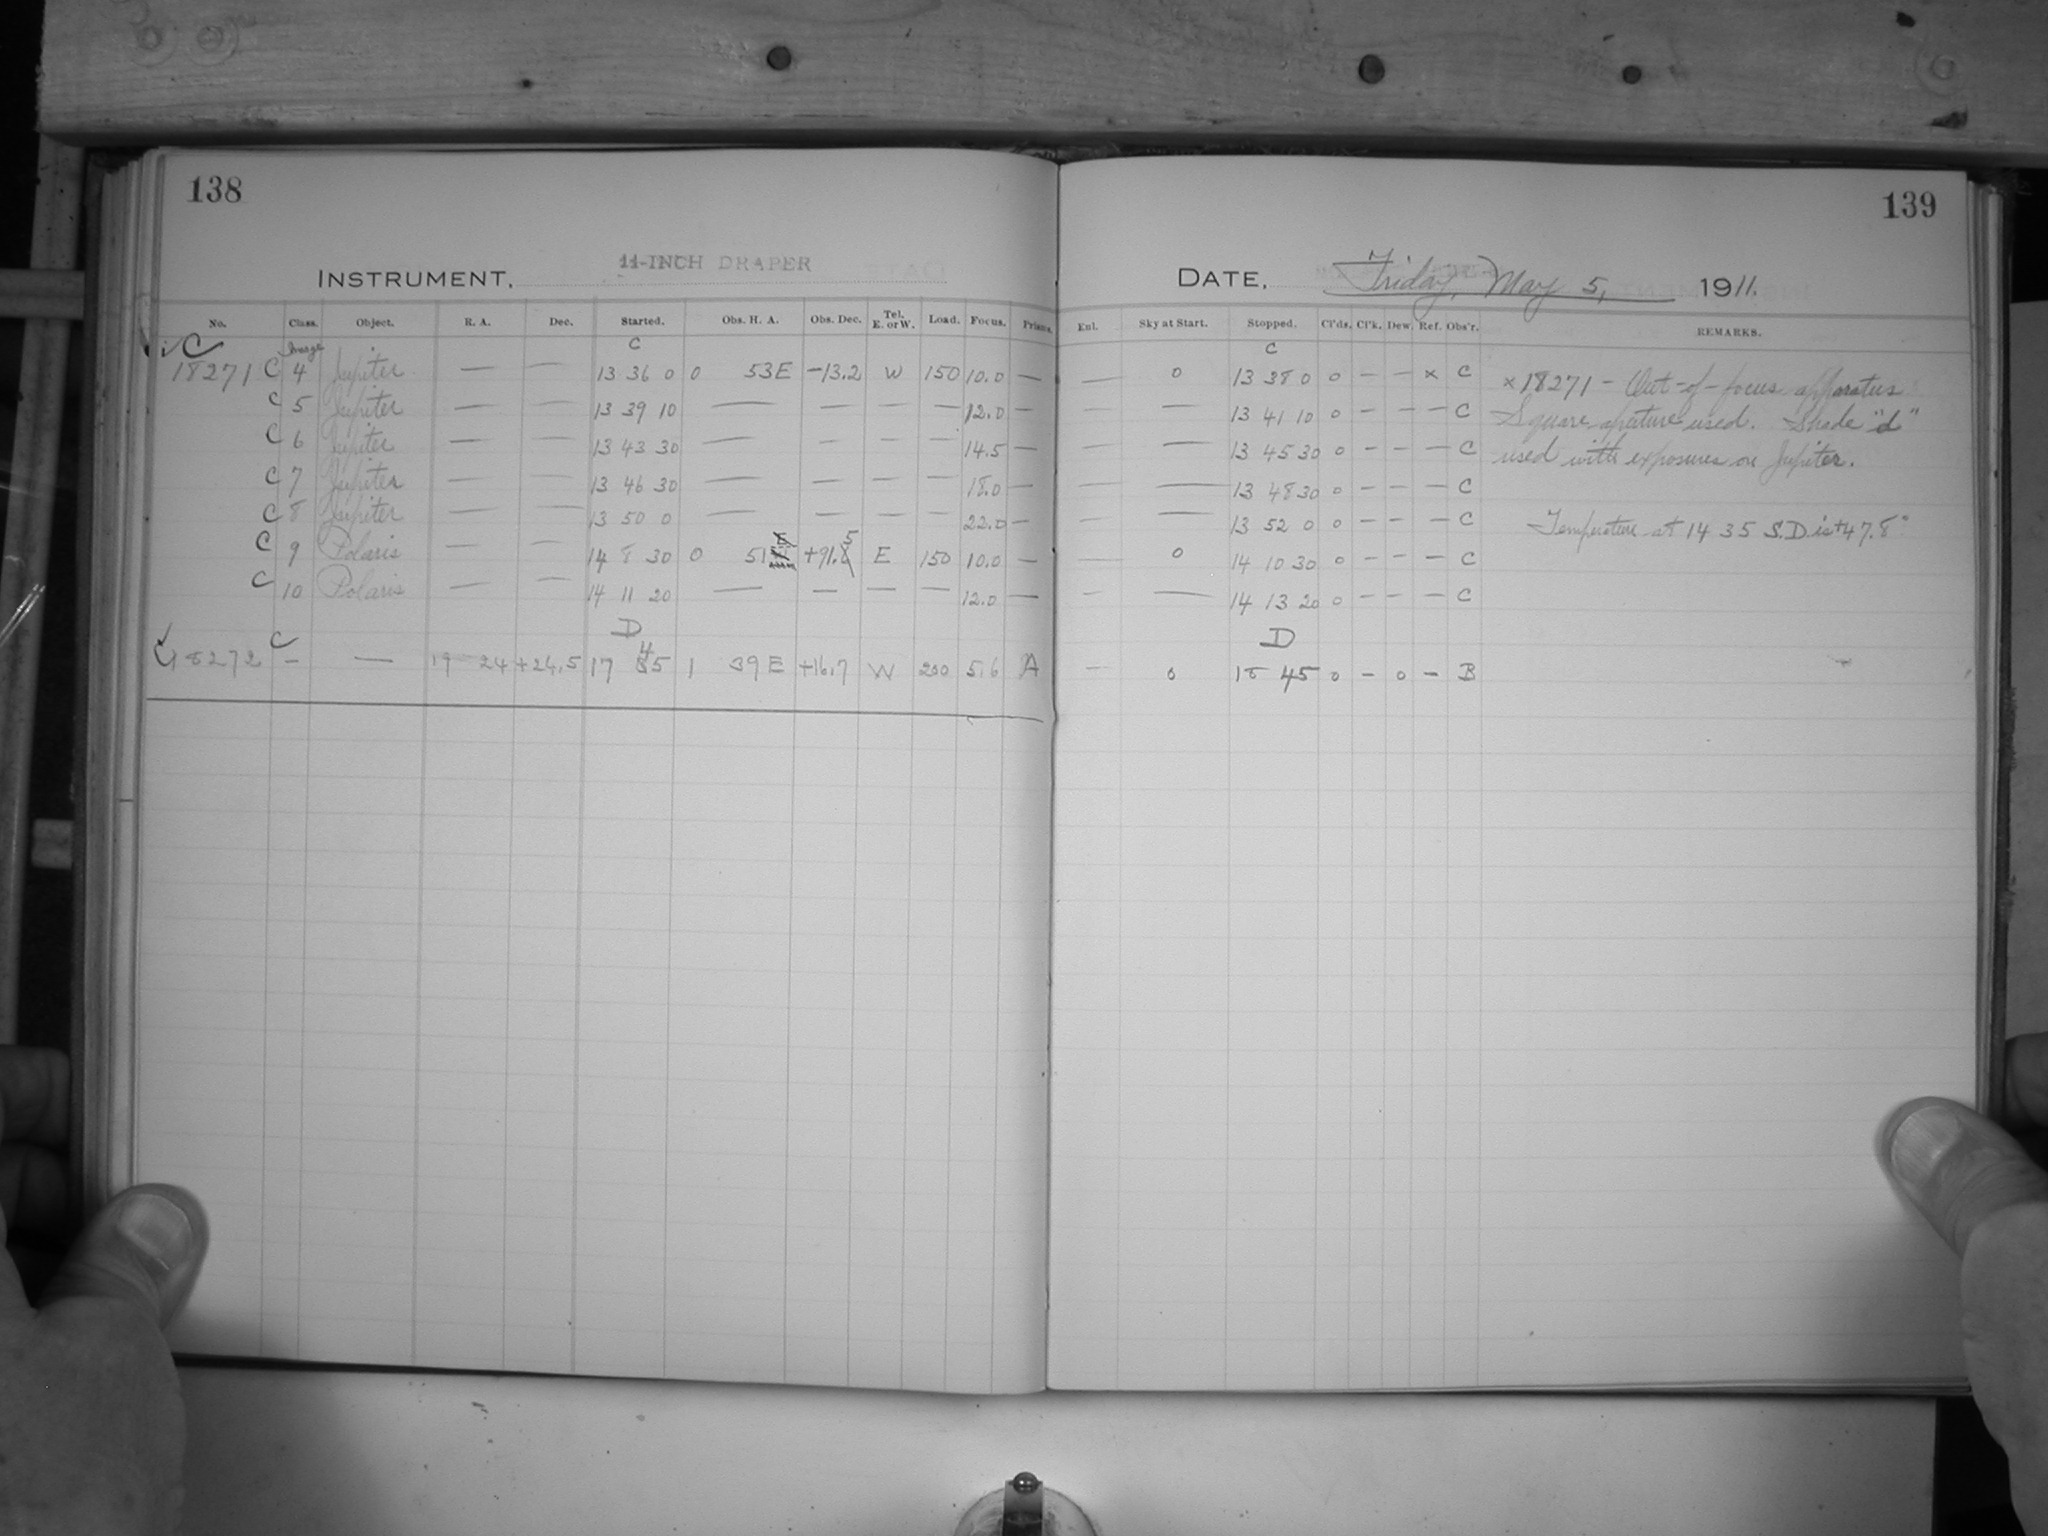 138
INSTRUMENT, 11-INCH DRAPER
No. Class. Object. R. A. Dec. Started. Obs. H. A. Obs. Dec. Tel. E. or W. Load. Focus. Prisms.
C Image C
18271 C 4 Jupiter — — 13 36 0 0 53 E -13.2 W 150 10.0 —
C 5 Jupiter — — 13 39 10 — — — — 12.0 —
C 6 Jupiter — — 13 43 30 — — — — 14.5 —
C 7 Jupiter — — 13 46 30 — — — — 18.0 —
C 8 Jupiter — — 13 50 0 — — — — 22.0 —
C 9 Polaris — — 14 8 30 0 51 E +91.5 E 150 10.0 —
C 10 Polaris — — 14 11 20 — — — — 12.0 —
D
18272 C — — 19 24 +24.5 17 45 1 39 E +16.7 W 200 5.6 A
139
DATE, Friday, May 5, 1911.
Enl. Sky at Start. Stopped. Cl'ds. Cl'k. Dew. Ref. Obs'r. REMARKS.
C
— 0 13 38 0 0 - - x C x 18271 - Out-of-focus apparatus
— — 13 41 10 0 - - - C Square aperture used. Shade "d"
— — 13 45 30 0 - - - C used with exposures on Jupiter.
— — 13 48 30 0 - - - C
— — 13 52 0 0 - - - C Temperature at 14 35 S.D. is +47.8°
— 0 14 10 30 0 - - - C
— — 14 13 20 0 - - - C
D
— 0 18 45 0 - 0 - B